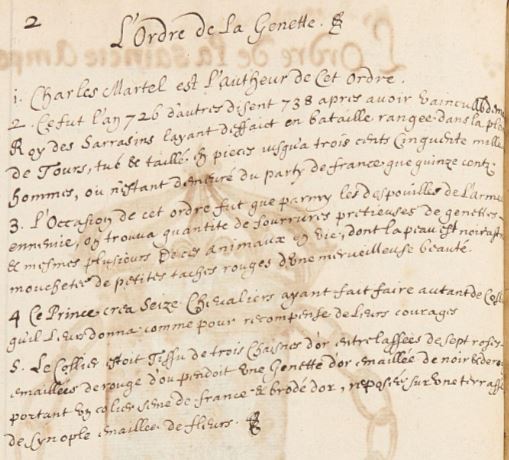 2
L'Ordre de La Genette.
1. Charles Martel est L'autheur de Cet ordre.
2. Ce fut l'an 726 d'autres disent 738 apres avoir vaincu Abdeme
Roy des Sarrasins layant deffaict en bataille rangee dans la pl
de Tours, tué & taillé en pieces jusqu'a trois cents Cinquante mille
hommes, ou n'estant demeuré du party de france que quinze centz
3. L'Occasion de cet ordre fut que parmy les despouilles de L'arme
ennemie, on trouva quantite de fourrures pretieuses de genettes
& mesmes plusieurs de ces animaux en vie, dont la peau est noirastre
mouchetes de petites taches rouges d'une merveilleuse beauté.
4 Ce Prince crea Seize Chevaliers ayant fait faire autant de Coll
qu'il Leurs donna comme pour recompense de Leurs courages
5. Le Collier estoit Tissu de trois Chaisnes d'or entrelassées de sept roses
emaillées de rouge d'ou pendoit une Genette d'or emaillée de noir &
portant un colier semé de france & brodé d'or, reposée sur une terrasse
de Synople emaillée de fleurs.